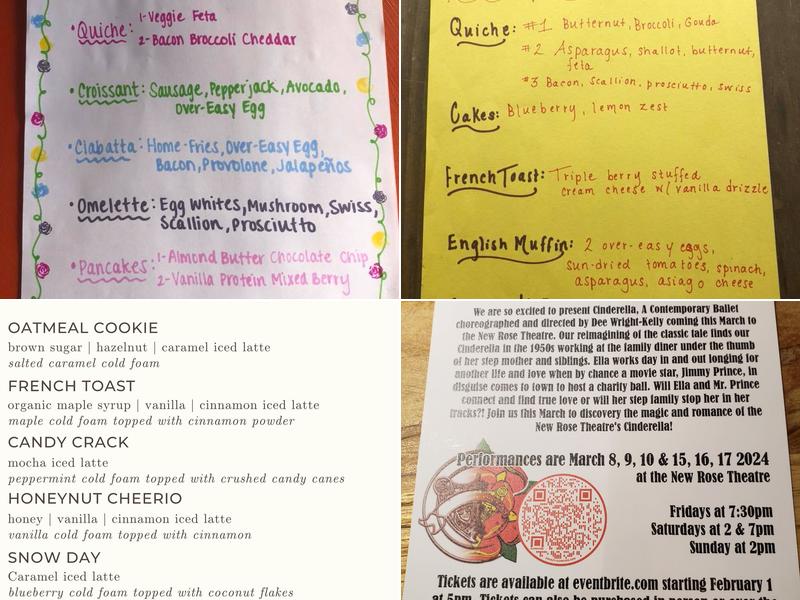 •Quiche: 1-Veggie Feta
2-Bacon Broccoli Cheddar
•Croissant: Sausage, Pepperjack, Avocado,
Over-Easy Egg
•Ciabatta: Home-Fries, Over-Easy Egg,
Bacon, Provolone, Jalapeños
•Omelette: Egg Whites, Mushroom, Swiss,
Scallion, Prosciutto
•Pancakes: 1-Almond Butter Chocolate Chip
2-Vanilla Protein Mixed Berry
Quiche: #1 Butternut, Broccoli, Gouda
#2 Asparagus, shallot, butternut,
feta
#3 Bacon, Scallion, prosciutto, swiss
Cakes: Blueberry, lemon zest
French Toast: Triple berry stuffed
cream cheese w/ vanilla drizzle
English Muffin: 2 over-easy eggs,
sun-dried tomatoes, spinach,
asparagus, asiago cheese
OATMEAL COOKIE
brown sugar | hazelnut | caramel iced latte
salted caramel cold foam
FRENCH TOAST
organic maple syrup | vanilla | cinnamon iced latte
maple cold foam topped with cinnamon powder
CANDY CRACK
mocha iced latte
peppermint cold foam topped with crushed candy canes
HONEYNUT CHEERIO
honey | vanilla | cinnamon iced latte
vanilla cold foam topped with cinnamon
SNOW DAY
Caramel iced latte
blueberry cold foam topped with coconut flakes
We are so excited to present Cinderella, A Contemporary Ballet
choreographed and directed by Dee Wright-Kelly coming this March to
the New Rose Theatre. Our reimagining of the classic tale finds our
Cinderella in the 1950s working at the family diner under the thumb
of her step mother and siblings. Ella works day in and out longing for
another life and love when by chance a movie star, Jimmy Prince, in
disguise comes to town to host a charity ball. Will Ella and Mr. Prince
connect and find true love or will her step family stop her in her
tracks?! Join us this March to discovery the magic and romance of the
New Rose Theatre's Cinderella!
Performances are March 8, 9, 10 & 15, 16, 17 2024
at the New Rose Theatre
Fridays at 7:30pm
Saturdays at 2 & 7pm
Sunday at 2pm
Tickets are available at eventbrite.com starting February 1
at 5pm. Tickets can also be purchased in person or over the